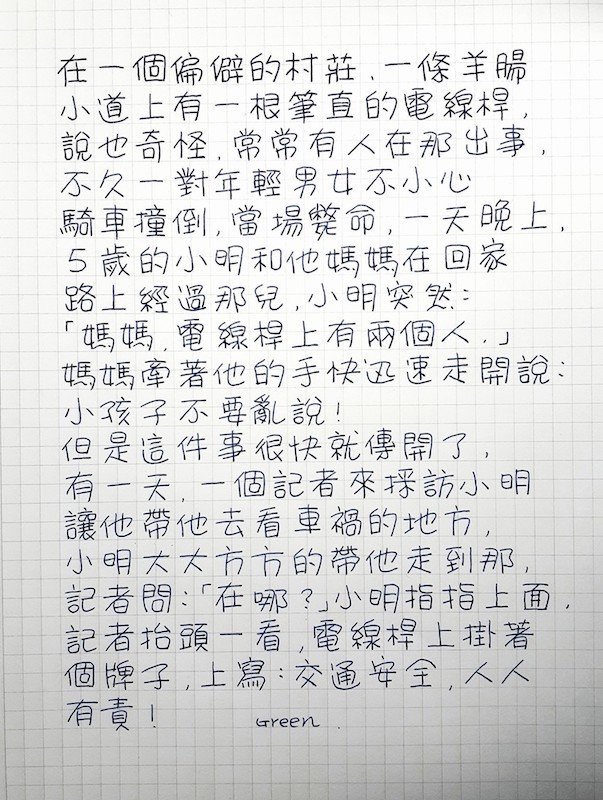 在一個偏僻的村莊，一條羊腸
小道上有一根筆直的電線桿，
說也奇怪，常常有人在那出事，
不久一對年輕男女不小心
騎車撞倒，當場斃命，一天晚上，
5歲的小明和他媽媽在回家
路上經過那兒，小明突然：
「媽媽，電線桿上有兩個人.」
媽媽牽著他的手快迅速走開說：
小孩子不要亂說！
但是這件事很快就傳開了，
有一天，一個記者來採訪小明
讓他帶他去看車禍的地方，
小明大大方方的帶他走到那，
記者問：「在哪？」小明指指上面，
記者抬頭一看，電線桿上掛著
個牌子，上寫：交通安全，人人
有責！ Green